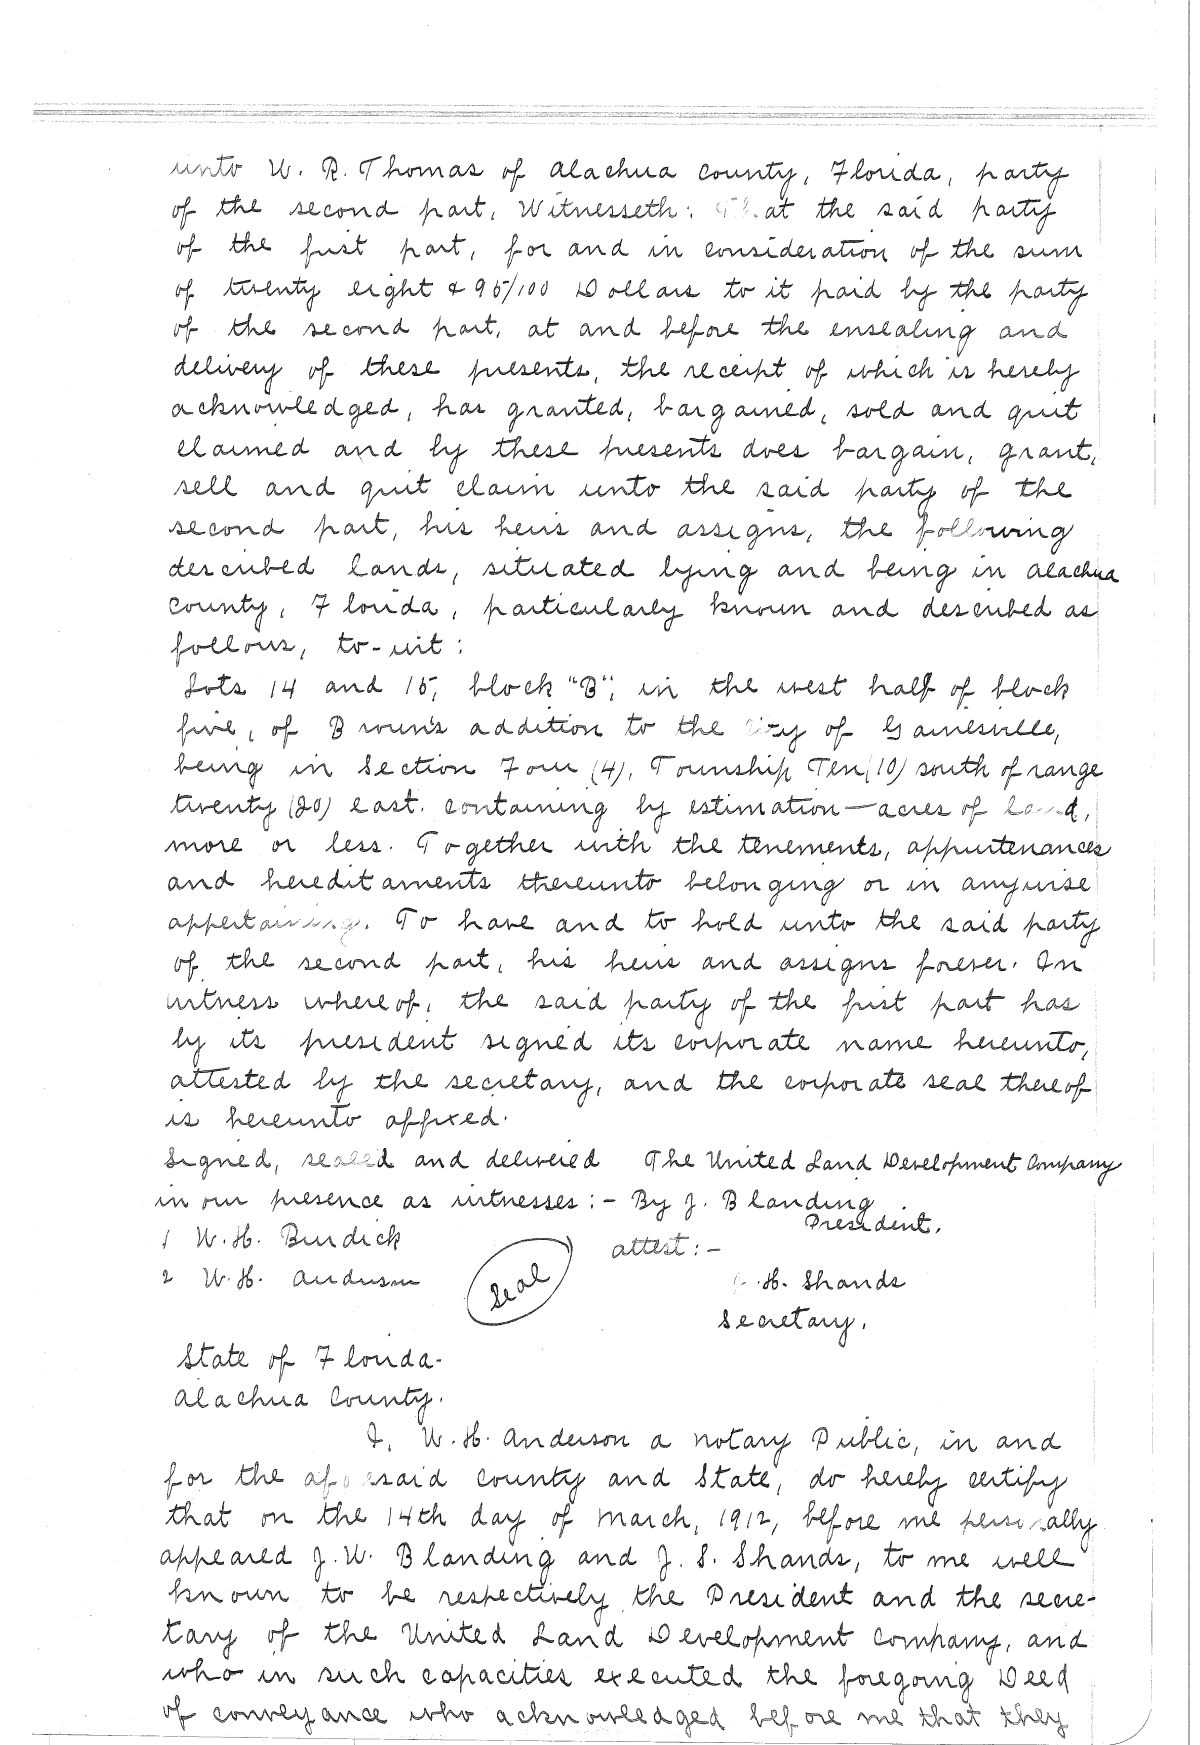 unto W. R. Thomas of Alachua County, Florida, party
of the second part, Witnesseth: That the said party
of the first part, for and in consideration of the sum
of twenty eight & 95/100 Dollars to it paid by the party
of the second part, at and before the ensealing and
delivery of these presents, the receipt of which is hereby
acknowledged, has granted, bargained, sold and quit
claimed and by these presents does bargain, grant,
sell and quit claim unto the said party of the
second part, his heirs and assigns, the following
described lands, situated lying and being in Alachua
County, Florida, particularly known and described as
follows, to-wit:
Lots 14 and 15, block "B", in the west half of block
five, of Brown's addition to the City of Gainesville,
being in Section Four (4), Township Ten (10) south of range
twenty (20) east. containing by estimation — acres of land,
more or less. Together with the tenements, appurtenances
and hereditaments thereunto belonging or in anywise
appertaining. To have and to hold unto the said party
of the second part, his heirs and assigns forever. In
witness whereof, the said party of the first part has
by its president signed its corporate name hereunto,
attested by the secretary, and the corporate seal thereof
is hereunto affixed.
Signed, sealed and delivered The United Land Development Company
in our presence as witnesses:- By J. Blanding
President.
1 W. H. Burdick
attest:-
2 W. H. Anderson
Seal
H. Shands
Secretary.
State of Florida-
Alachua County.
I, W. H. Anderson a Notary Public, in and
for the aforesaid County and State, do hereby certify
that on the 14th day of March, 1912, before me personally
appeared J. W. Blanding and J. S. Shands, to me well
known to be respectively the President and the secre-
tary of the United Land Development Company, and
who in such capacities executed the foregoing Deed
of conveyance who acknowledged before me that they